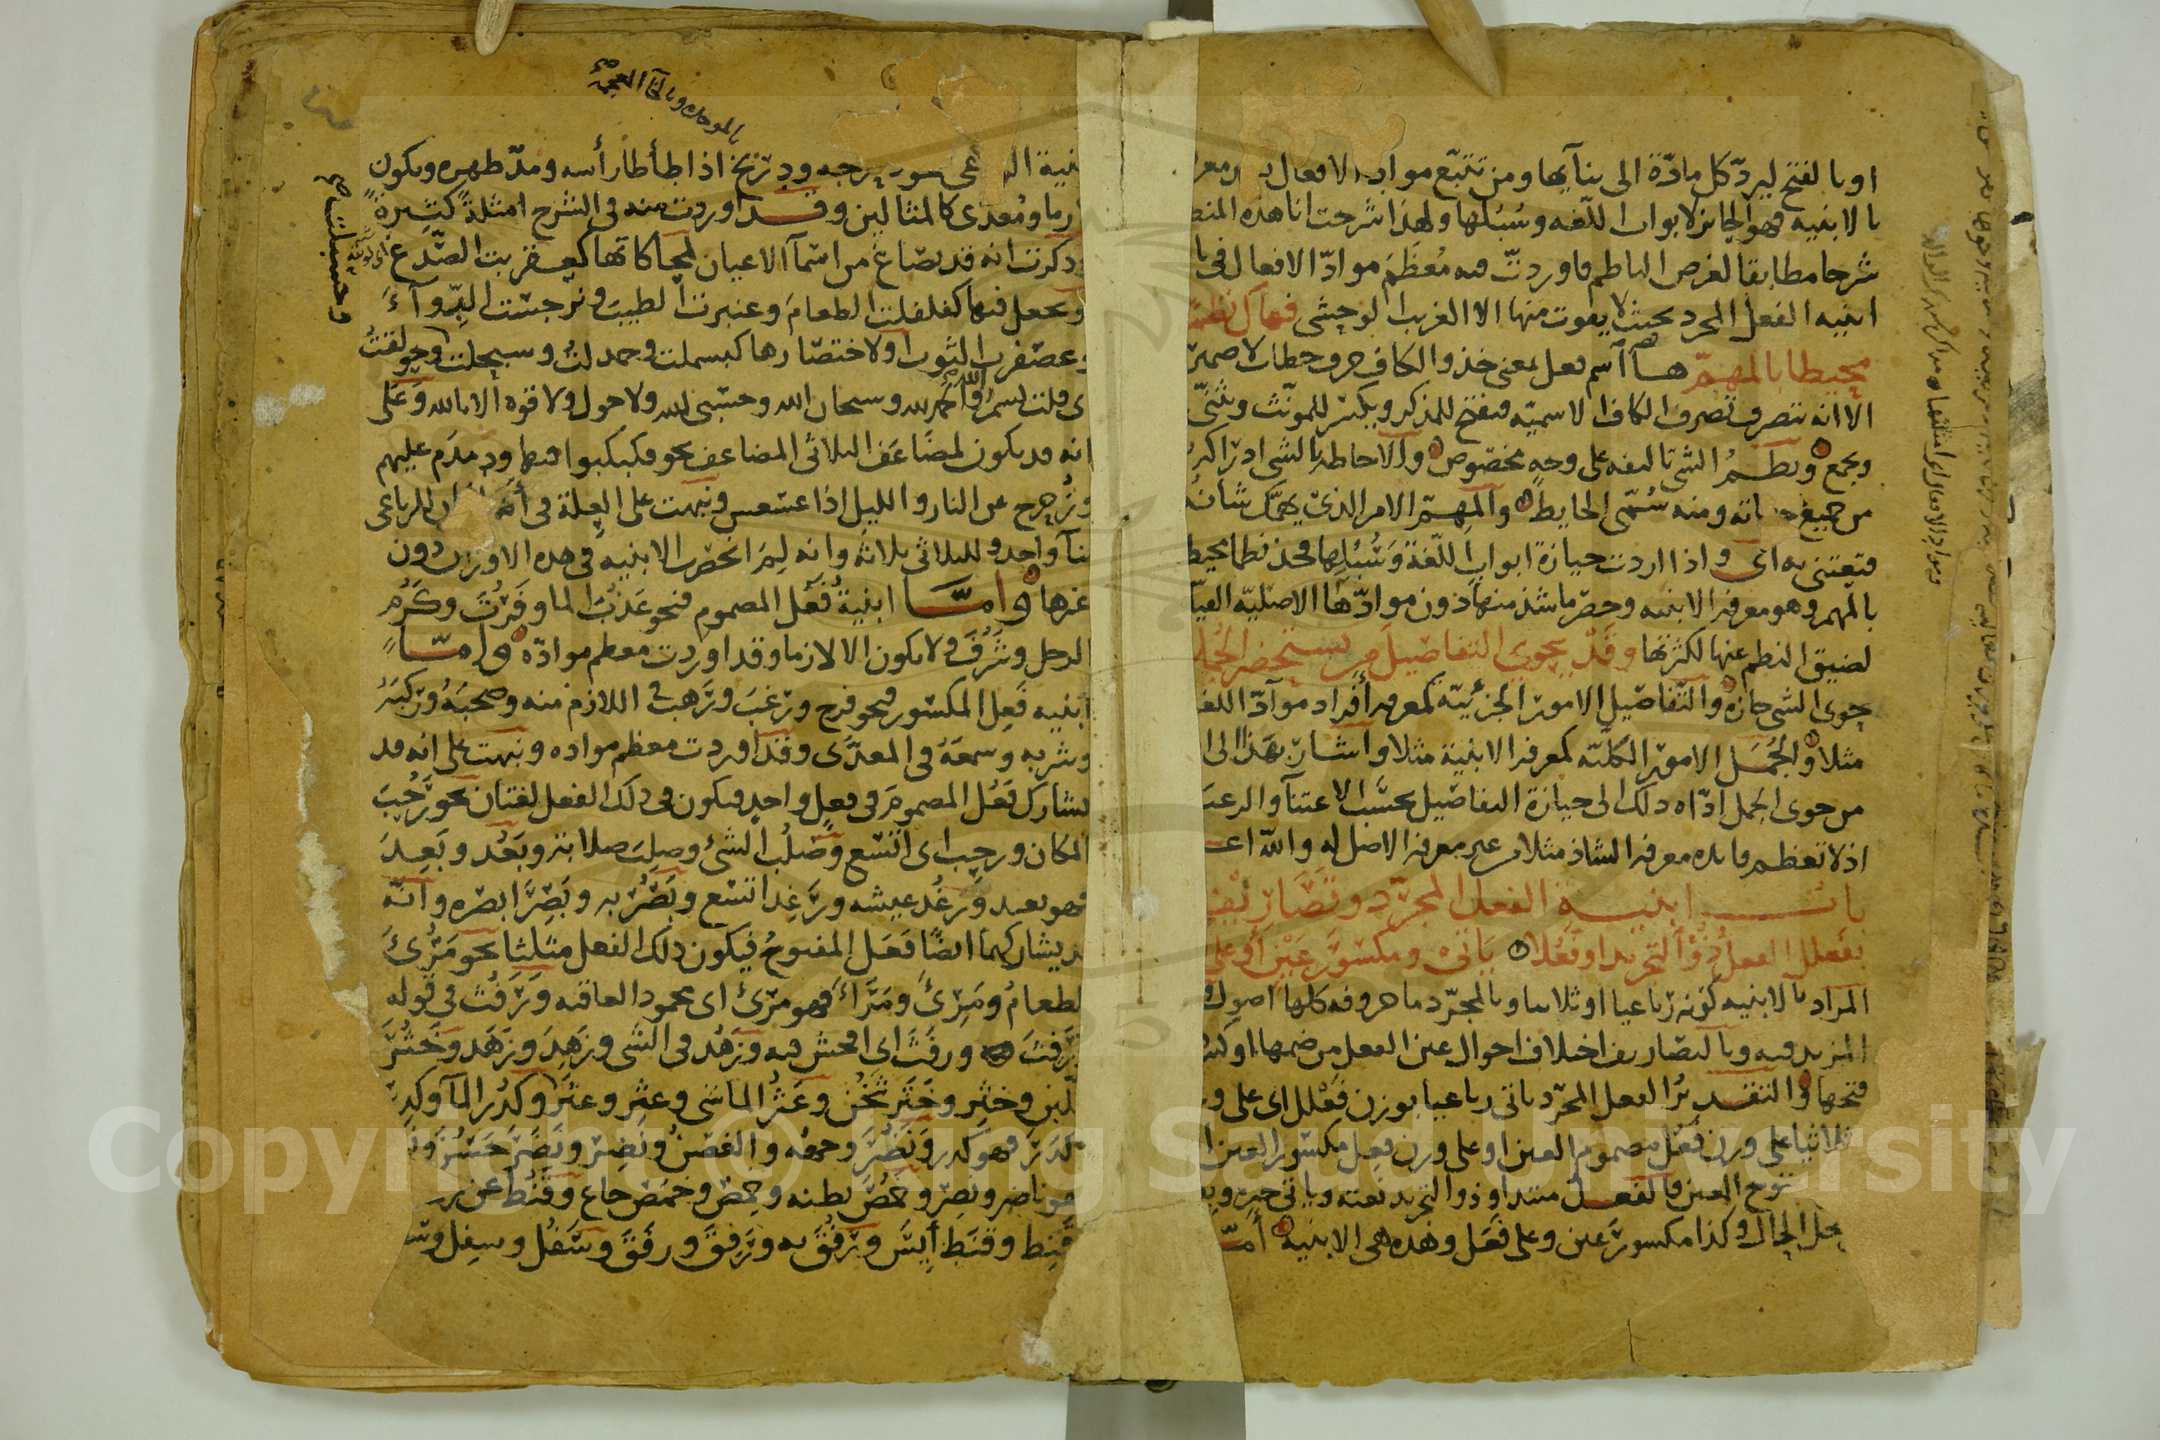 او بالفتح ليردّ كل مادّة الى بنائها ومن تتبّع مواد الافعال
بالابنيه فهو الحائز لابواب اللّغه وسُبُلها ولهذا شرحت انا هذه
شرحا مطابقا لغرض الناظم فاوردتّ فيه مُعظَم موادّ الافعال في
ابنيه الفعل المجرد بحيث لا يفوت منها الا الغريب الوحشى فهاك نظما
محيطا بالمهمّ هـا اسم فعل بمعنى خذ والكاف حرف خطاب لا ضمير
الا انه تتصرف تصرف الكاف الاسميّه فتفتح للمذكر ويكسر للمونّث ويثنّى
ويجمع ونظمُ الشى تاليفه على وجه مخصوص والاحاطه بالشى ادراكه
من جميع جهاته ومنه سُمّى الحايط والمهمّ الامر الذى يهمّك شانه
فتعتنى به اى واذا اردت حيازة ابواب اللّغة وسُبُلها فخذ نظما يحيط
بالمهم وهو معرفه الابنيه وحصر ما شذ منها دون موادّها الاصليّه
لضيق النظم عنها لكثرتها وقد يحوى التفاصيل من يستحضر الجملا
حوى الشى حازه والتفاصيل الامور الجزئيّة كمعرفه أفراد موادّ اللغه
مثلا والجُمَل الامور الكلّيّه كمعرفه الابنية مثلا واشار بهذا الى ان
من حوى الجمل ادّاه ذلك الى حيازة التفاصيل بحسب الاعتنآ والرغبه
اذ لا تعظم فايده معرفه الشاذ مثلا من غير معرفه الاصل له والله اعلم
باب ابنيـة الفعل المجرّد وتصاريفه
بفعلل الفعل ذُو التجريد او فَعُلا ياتى ومكسور عين او على
المراد بالابنيه كونه رباعيا او ثلاثيا وبالمجرّد ما حروفه كلها اصول
المزيد فيه وبالتصاريف اختلاف احوال عين الفعل من ضمها او كسرها
فتحها والتقدير الفعل المجرّد ياتى رباعيا بوزن فَعْلل اى على
ثلاثيا على وزن فَعُل مضموم العين او على وزن فَعِل مكسور العين
مفتوح العين فالفعـل مبتدا وذو التجريد نعته وياتى خبره
محل الحال وكذا مكسور عين وعلى فَعَل وهذه هى الابنيه أمّـ
بالموحده وبالخآ المعجمة
ودربخ اذا طأطأ رأسه ومدّ ظهره ويكون
لازما ومُعدّى كالمثالين وقد اوردت منه فى الشرح امثلةً كثيرةً
وذكرت انه قد يصاغ من اسمآ الاعيان لمحاكاتها كعقربت الصّدغ
او يجعل فيها كفلفلت الطعام وعنبرت الطيب ونرجست الدّوآء
وعصفرت الثوب او لاختصارها كبسملت وحمدلت وسبحلت وحولقت
اى قلت بسم الله والحمد لله وسبحان الله وحسبى الله ولا حول ولا قوه الا بالله وعلى
انه قد يكون لمضاعف الثلاثى المضاعف نحو فكبكبوا فيها ودمدم عليهم
وزُحزح عن النار والليل اذا عسعس ونبهت على العلة فى أنه للرباعى
بنآ واحد وللثلاثى ثلاثه وانه لِمَ انحصرت الابنيه فى هذه الاوزان دون
غيرها وامّـا ابنيةُ فَعُل المضموم فنحو عَذُبَ الما وفَرُتَ وكَرُم
الرجل وشَرُفَ ولا يكون الا لازما وقد اوردت معظم موادّه وامّـا
ابنيه فَعِل المكسور فنحو فرح ورَغِبَ ورَهِب فى اللازم منه وصحبَهُ ورَكبَهُ
وشربه وسمعَهُ فى المعدّى وقد اوردت معظم مواده ونبهت على انه قد
يشارك فَعُل المضموم فى فعل واحد فيكون فى ذلك الفعل لغتان نحو رَحُبَ
المكان ورحِب اى اتّسع وصَلُب الشئ وصلِبَ صلابة وبَعُد وبَعِدَ
فهو بعيد ورَغُد عيشه ورَغِد اتسع وبَصُرَ به وبَصِرَ ابصره وانّه
قد يشاركهما ايضًا فَعَل المفتوح فيكون ذلك الفعل مثلثا نحو مَرُئَ
الطعامُ ومَرِئَ ومَرَأَ فهو مرئ اى محمود العاقبه ورَفُث فى قوله
ورفِثَ ورفَثَ اى افحش فيه وزَهُد فى الشى وزهِدَ وزَهَد وخَثُرَ
اللبن وخثِر وخَثَر ثَخُن وعَثُر الماشى وعثِر وعثَر وكدُر المآ وكدِر
وكدَر فهو كدر ونَضُرَ وجهُه والغصنُ ونَضِرَ ونَضَرَ حَسُنَ
فهو ناضر ونضِر وخمُصَ بطنه وخمِص وخمَص جاع وقنُط عن
وقَنِط وقنَط أيِسَ ورَفُقَ به ورَفِقَ ورفَقَ وسَفُل وسفِل